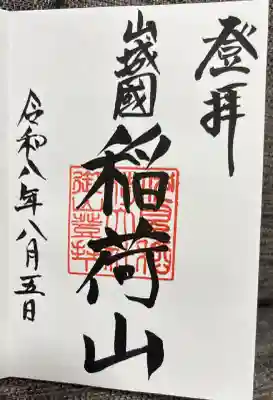 登拝
山城國
稲荷山
令和八年八月五日